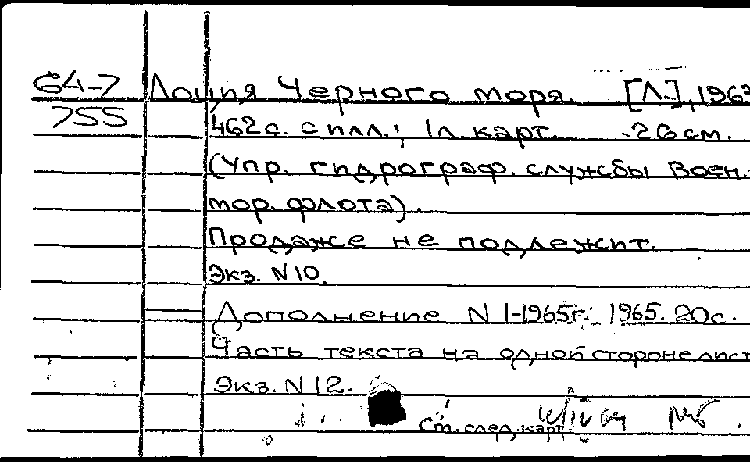 64-7 Лоция Черного моря. [Л.], 196
755 462с. с илл.; 1л. карт. 26см.
(Упр. гидрограф. службы Воен.-
мор. флота).
Продаже не подлежит.
Экз. N10.
Дополнение N 1-1965г. 1965. 20с.
Часть текста на одной стороне лист
Экз. N 12.
См. след. карт.